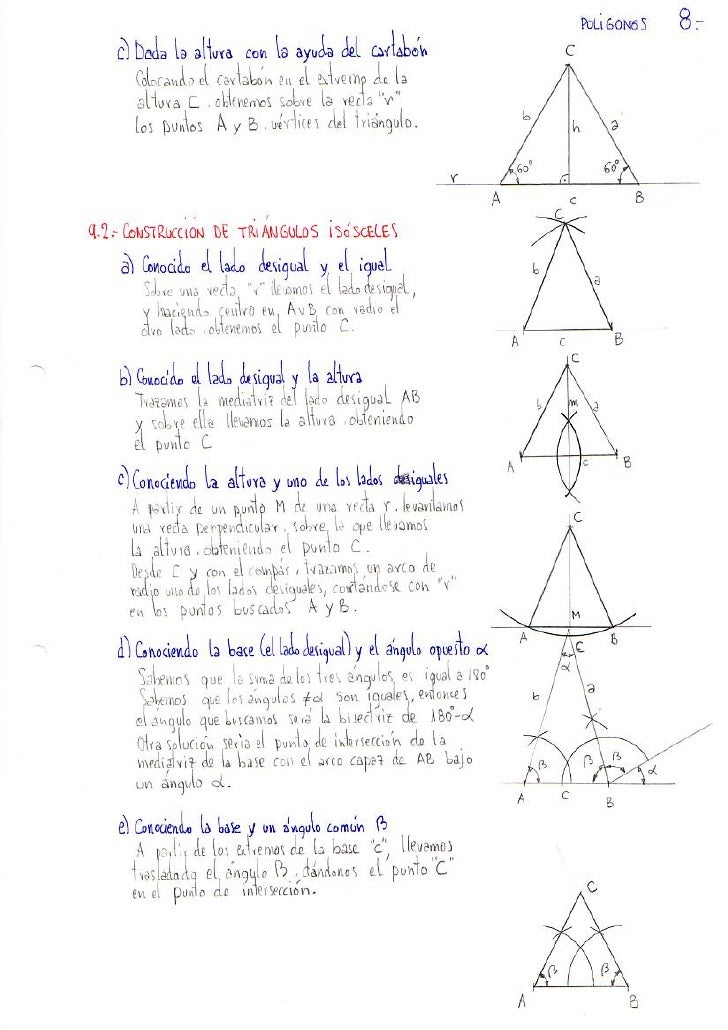 POLIGONOS 8.-
c) Dada la altura con la ayuda del cartabón
Colocando el cartabón en el extremo de la
altura C, obtenemos sobre la recta "r"
los puntos A y B, vértices del triángulo.
C
b
h
a
60°
60°
r
A
c
B
9.2.- CONSTRUCCIÓN DE TRIÁNGULOS ISÓSCELES
a) Conocido el lado desigual y el igual
Sobre una recta "r" llevamos el lado desigual,
y haciendo centro en A y B con radio el
otro lado, obtenemos el punto C.
C
b
a
A
c
B
b) Conocido el lado desigual y la altura
Trazamos la mediatriz del lado desigual AB
y sobre ella llevamos la altura, obteniendo
el punto C
C
b
m
a
A
c
B
c) Conociendo la altura y uno de los lados desiguales
A partir de un punto M de una recta r, levantamos
una recta perpendicular, sobre la que llevamos
la altura, obteniendo el punto C.
Desde C y con el compás, trazamos un arco de
radio uno de los lados desiguales, cortándose con "r"
en los puntos buscados A y B.
C
M
A
B
d) Conociendo la base (el lado desigual) y el ángulo opuesto α
Sabemos que la suma de los tres ángulos es igual a 180°
Sabemos que los ángulos ≠α son iguales, entonces
el angulo que buscamos será la bisectriz de 180°-α
Otra solución sería el punto de intersección de la
mediatriz de la base con el arco capaz de AB bajo
un ángulo α.
C
α
b
a
β
β
β
α
A
C
B
e) Conociendo la base y un ángulo común β
A partir de los extremos de la base "c", llevamos
trasladado el ángulo β, dándonos el punto "C"
en el punto de intersección.
C
β
β
A
B